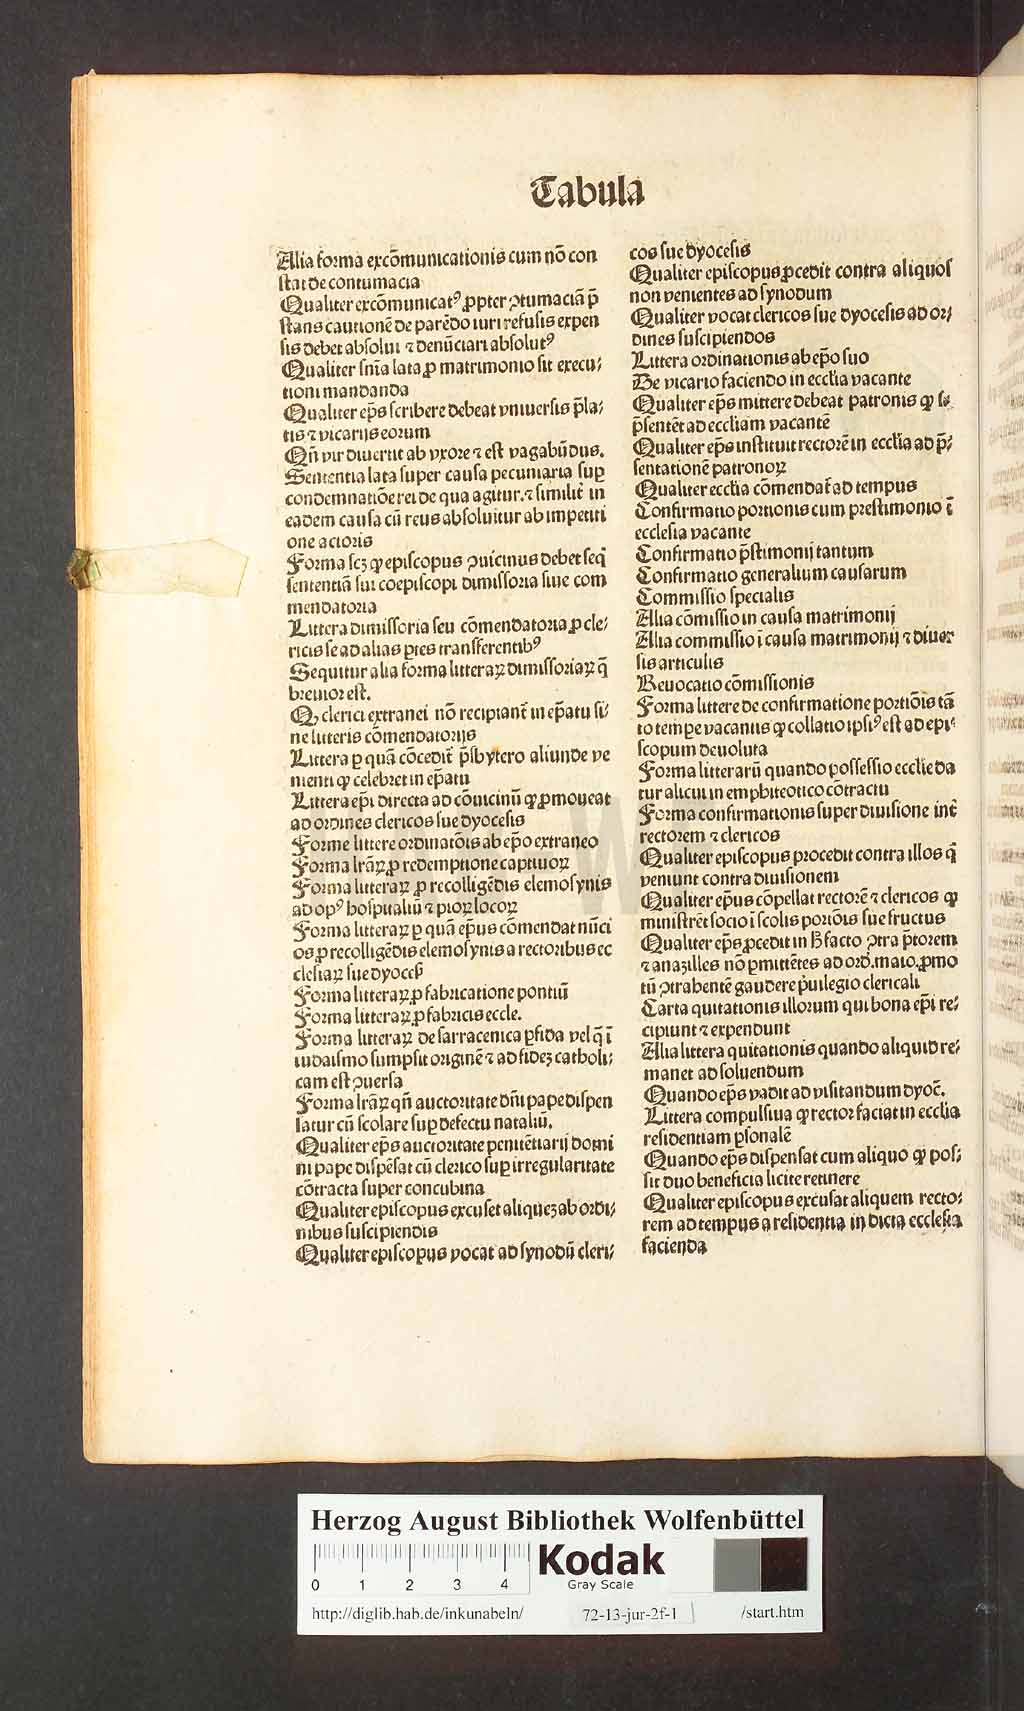 Tabula
Alia forma excōmunicationis cum nō con
stat de contumacia
Qualiter excōmunicatꝰ ꝓpter ↄtumaciā p̄
stans cautionē de parēdo iuri refusis expen
sis debet absolui ⁊ denūciari absolutꝰ
Qualiter sn̄ia lata ꝓ matrimonio sit execu⸗
tioni mandanda
Qualiter ep̄s scribere debeat vniuersis p̄la⸗
tis ⁊ vicarijs eorum
Qn̄ vir diuertit ab vxore ⁊ est vagabūdus.
Sententia lata super causa pecuniaria sup̱
condemnatiōe rei de qua agitur. ⁊ similit̄ in
eadem causa cū reus absoluitur ab impetiti
one actoris
Forma scꝫ ꝙ episcopus ↄuicinus debet seq̄
sententiā sui coepiscopi dimissoria siue com
mendatoria
Littera dimissoria seu cōmendatoria ꝓ cle⸗
ricis se ad alias ꝑtes transferentibꝰ
Sequitur alia forma litteraꝝ dimissoriaꝝ q̄
breuior est.
Ꝙ clerici extranei nō recipiant̄ in ep̄atu si⸗
ne litteris cōmendatorijs
Littera ꝑ quā cōcedit̄ p̄sbytero aliunde ve
nienti ꝙ celebret in ep̄atu
Littera ep̄i directa ad cōuicinū ꝙ ꝓmoueat
ad ordines clericos sue dyocesis
Forme littere ordinatōis ab ep̄o extraneo
Forma lrāꝝ ꝓ redemptione captiuoꝝ
Forma litteraꝝ ꝓ recolligēdis elemosynis
ad opꝰ hospitaliū ⁊ pioꝝ locoꝝ
Forma litteraꝝ ꝑ quā ep̄us cōmendat nūci
os ꝓ recolligēdis elemosynis a rectoribus ec
clesiaꝝ sue dyoces̄
Forma litteraꝝ ꝓ fabricatione pontiū
Forma litteraꝝ ꝓ fabricis eccle.
Forma litteraꝝ de sarracenica ꝑfida vel q̄ ī
iudaismo sumpsit originē ⁊ ad fideꝫ catholi⸗
cam est ↄuersa
Forma lrāꝝ qn̄ auctoritate dn̄i pape dispen
satur cū scolare suꝑ defectu nataliū.
Qualiter ep̄s auctoritate penitētiarij domi
ni pape dispēsat cū clerico suꝑ irregularitate
cōtracta super concubina
Qualiter episcopus excuset aliqueꝫ ab ordi⸗
nibus suscipiendis
Qualiter episcopus vocat ad synodū cleri⸗
cos sue dyocesis
Qualiter episcopus ꝓcedit contra aliquos
non venientes ad synodum
Qualiter vocat clericos sue dyocesis ad or⸗
dines suscipiendos
Littera ordinationis ab ep̄o suo
De vicario faciendo in ecclīa vacante
Qualiter ep̄s mittere debeat patronis ꝙ
p̄sentēt ad eccliam vacantē
Qualiter ep̄s instituit rectorē in ecclīa ad p̄⸗
sentationē patronoꝝ
Qualiter ecclīa cōmendat̄ ad tempus
Confirmatio portionis cum prestimonio ī
ecclesia vacante
Confirmatio p̄stimonij tantum
Confirmatio generalium causarum
Commissio specialis
Alia cōmissio in causa matrimonij
Alia commissio ī causa matrimonij ⁊ diuer
sis articulis
Reuocatio cōmissionis
Forma littere de confirmatione portiōis tā
to tempe vacantis ꝙ collatio ipsiꝰ est ad epi⸗
scopum deuoluta
Forma litterarū quando possessio ecclie da
tur alicui in emphiteotico cōtractu
Forma confirmationis super diuisione int̄
rectorem ⁊ clericos
Qualiter episcopus procedit contra illos q̄
veniunt contra diuisionem
Qualiter ep̄us cōpellat rectorē ⁊ clericos ꝙ
ministrēt socio ī scolis portiōis sue fructus
Qualiter ep̄s ꝓcedit in facto ↄtra p̄torem
⁊ anazilles nō ꝑmittētes ad ord̄. maio. ꝓmo
tū ↄtrahentē gaudere p̄uilegio clericali
Carta quitationis illorum qui bona ep̄i re⸗
cipiunt ⁊ expendunt
Alia littera quitationis quando aliquid re⸗
manet ad soluendum
Quando ep̄s vadit ad visitandum dyoc̄.
Littera compulsiua ꝙ rector faciat in ecclīa
residentiam ꝑsonalē
Quando ep̄s dispensat cum aliquo ꝙ pos⸗
sit duo beneficia licite retinere
Qualiter episcopus excusat aliquem recto⸗
rem ad tempus a residentia in dicta ecclesia
facienda
Herzog August Bibliothek Wolfenbüttel
0 1 2 3 4
Kodak
Gray Scale
http://diglib.hab.de/inkunabeln/ 72-13-jur-2f-1 /start.htm